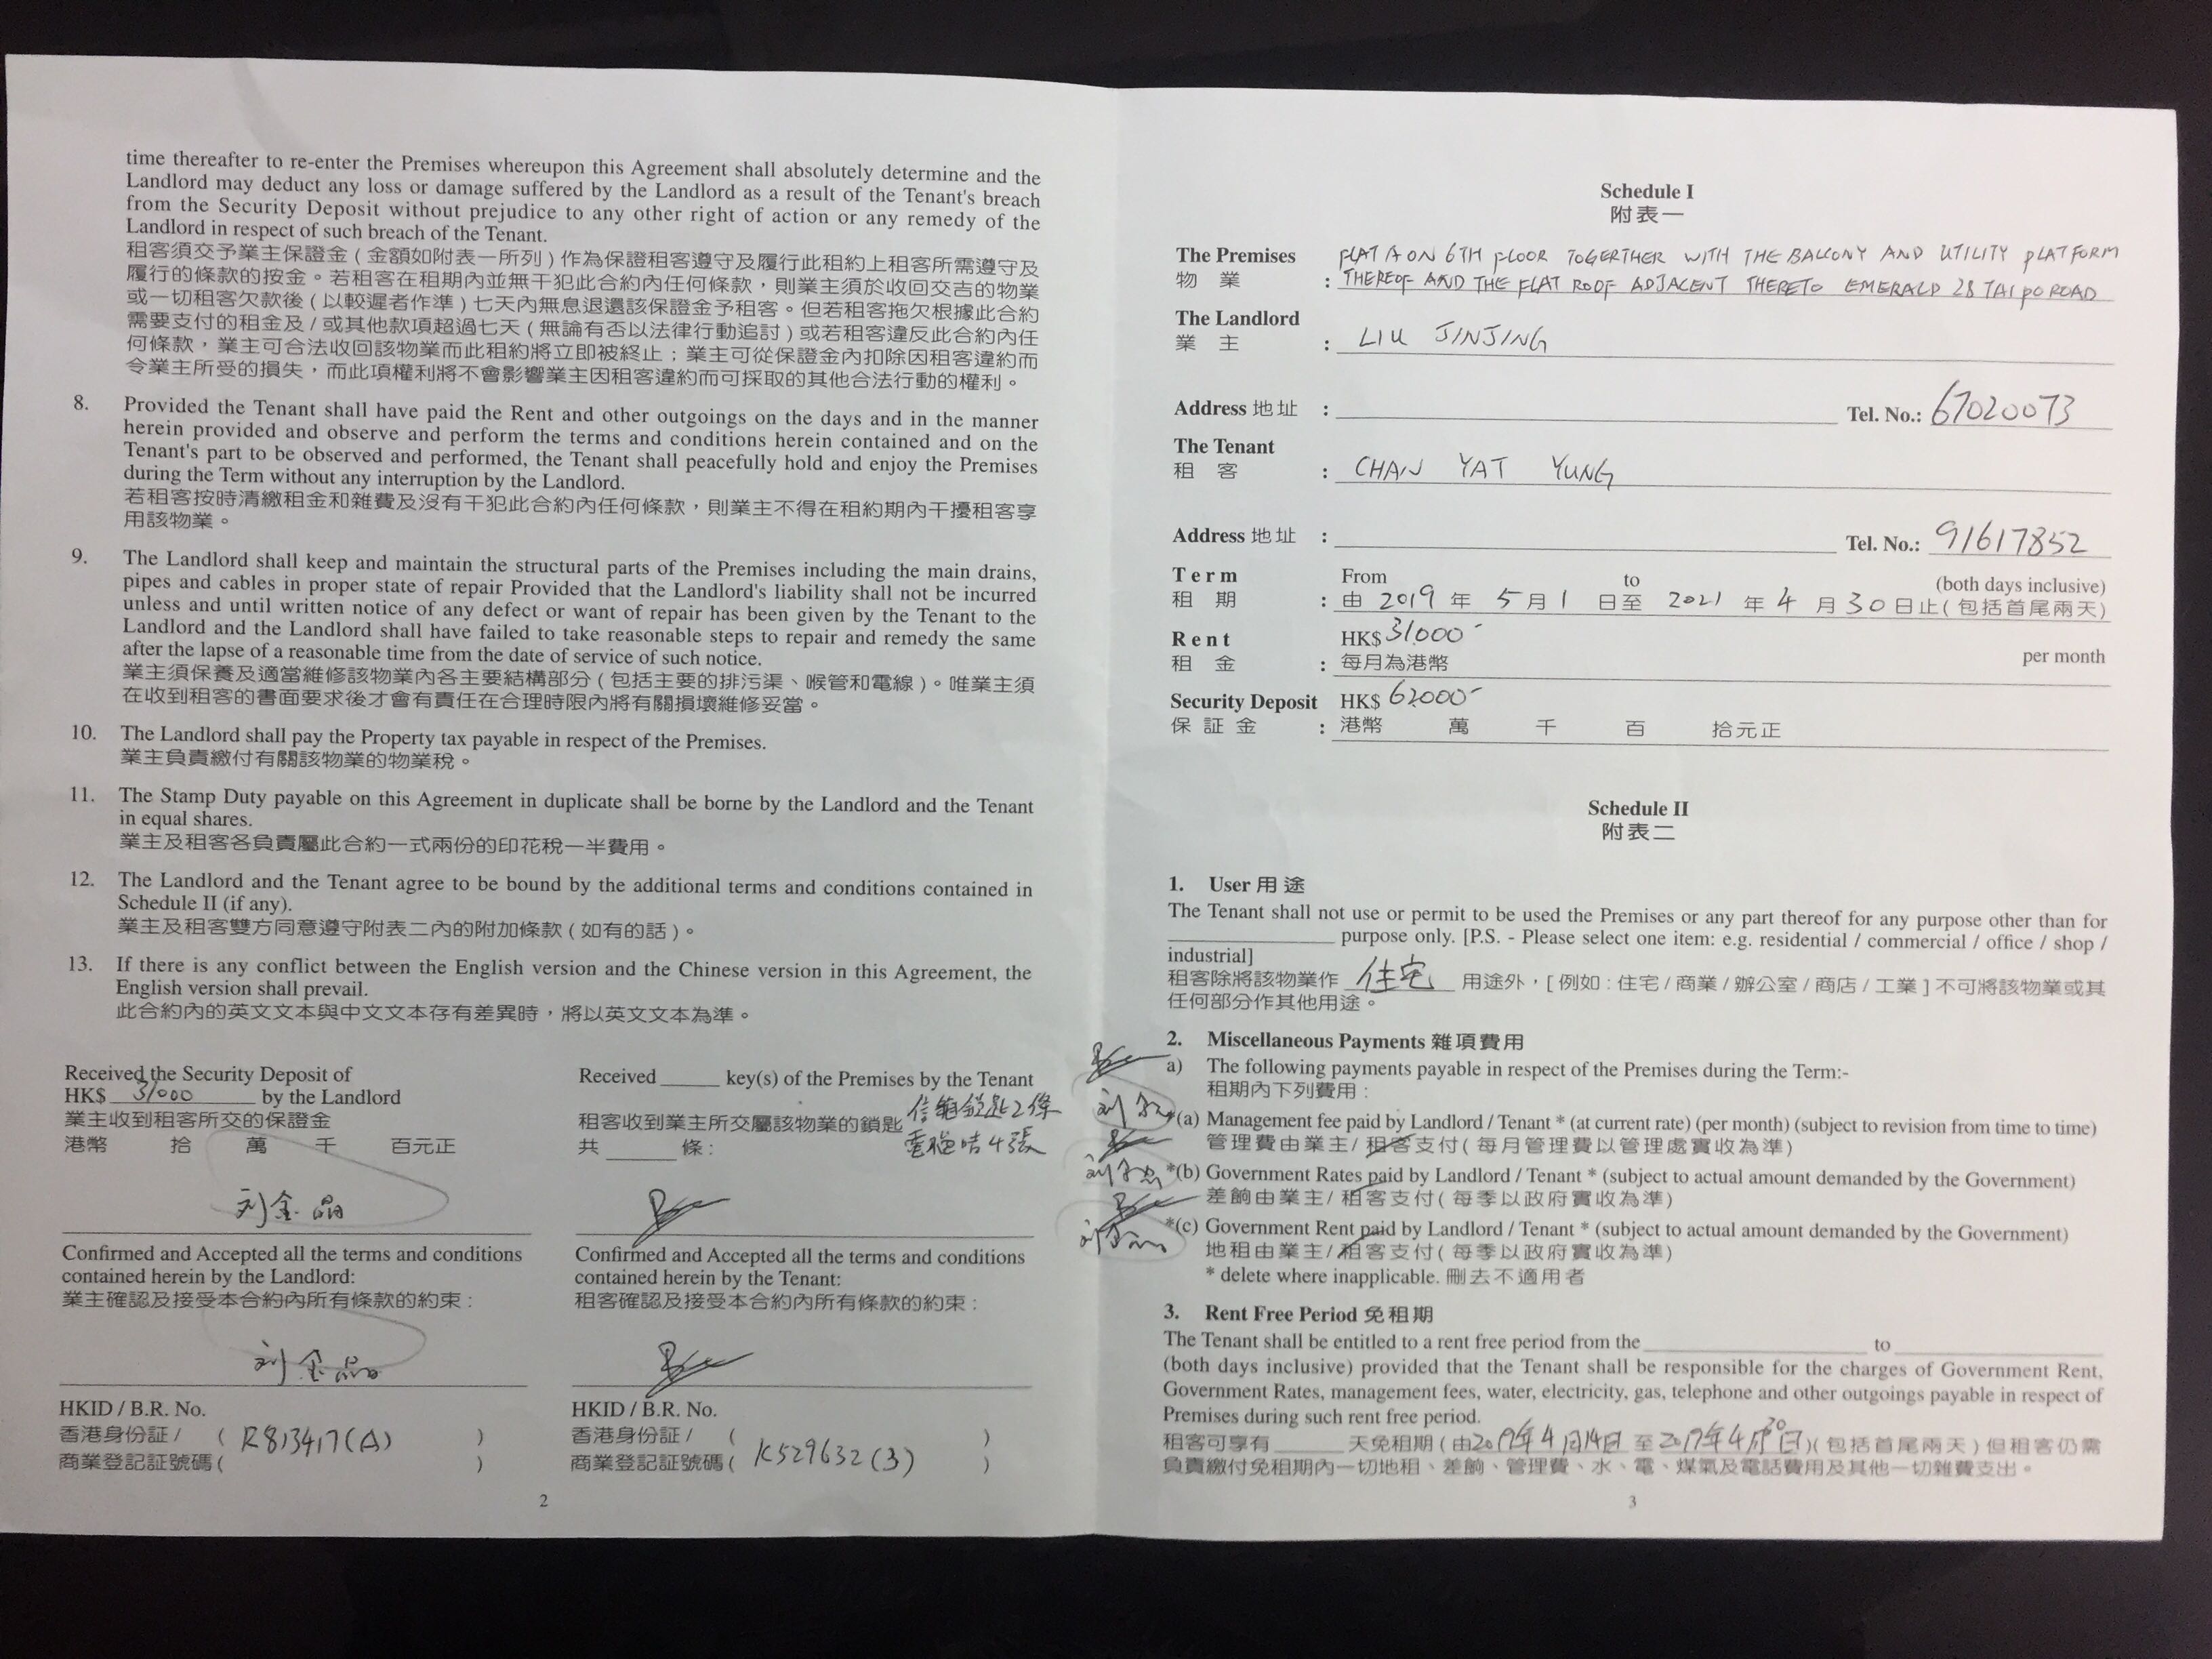 time thereafter to re-enter the Premises whereupon this Agreement shall absolutely determine and the
Landlord may deduct any loss or damage suffered by the Landlord as a result of the Tenant's breach
from the Security Deposit without prejudice to any other right of action or any remedy of the
Landlord in respect of such breach of the Tenant.
租客須交予業主保證金(金額如附表一所列)作為保證租客遵守及履行此租約上租客所需遵守及
履行的條款的按金。若租客在租期內並無干犯此合約內任何條款,則業主須於收回交吉的物業
或一切租客欠款後(以較遲者作準)七天內無息退還該保證金予租客。但若租客拖欠根據此合約
需要支付的租金及/或其他款項超過七天(無論有否以法律行動追討)或若租客違反此合約內任
何條款,業主可合法收回該物業而此租約將立即被終止;業主可從保證金內扣除因租客違約而
令業主所受的損失,而此項權利將不會影響業主因租客違約而可採取的其他合法行動的權利。
8. Provided the Tenant shall have paid the Rent and other outgoings on the days and in the manner
herein provided and observe and perform the terms and conditions herein contained and on the
Tenant's part to be observed and performed, the Tenant shall peacefully hold and enjoy the Premises
during the Term without any interruption by the Landlord.
若租客按時清繳租金和雜費及沒有干犯此合約內任何條款,則業主不得在租約期內干擾租客享
用該物業。
9. The Landlord shall keep and maintain the structural parts of the Premises including the main drains,
pipes and cables in proper state of repair Provided that the Landlord's liability shall not be incurred
unless and until written notice of any defect or want of repair has been given by the Tenant to the
Landlord and the Landlord shall have failed to take reasonable steps to repair and remedy the same
after the lapse of a reasonable time from the date of service of such notice.
業主須保養及適當維修該物業內各主要結構部分(包括主要的排污渠、喉管和電線)。唯業主須
在收到租客的書面要求後才會有責任在合理時限內將有關損壞維修妥當。
10. The Landlord shall pay the Property tax payable in respect of the Premises.
業主負責繳付有關該物業的物業稅。
11. The Stamp Duty payable on this Agreement in duplicate shall be borne by the Landlord and the Tenant
in equal shares.
業主及租客各負責屬此合約一式兩份的印花稅一半費用。
12. The Landlord and the Tenant agree to be bound by the additional terms and conditions contained in
Schedule II (if any).
業主及租客雙方同意遵守附表二內的附加條款(如有的話)。
13. If there is any conflict between the English version and the Chinese version in this Agreement, the
English version shall prevail.
此合約內的英文文本與中文文本存有差異時,將以英文文本為準。
Received the Security Deposit of
HK$ 31000 by the Landlord
業主收到租客所交的保證金
港幣 拾 萬 千 百元正
刘金晶
Confirmed and Accepted all the terms and conditions
contained herein by the Landlord:
業主確認及接受本合約內所有條款的約束:
刘金晶
HKID / B.R. No.
香港身份証/ ( R813417(A) )
商業登記証號碼( )
Received ______ key(s) of the Premises by the Tenant
租客收到業主所交屬該物業的鎖匙 信箱鎖匙2條
共 ______ 條: 4張
Confirmed and Accepted all the terms and conditions
contained herein by the Tenant:
租客確認及接受本合約內所有條款的約束:
HKID / B.R. No.
香港身份証/ ( )
商業登記証號碼( K529632(3) )
2
Schedule I
附表一
The Premises FLAT A ON 6TH FLOOR TOGERTHER WITH THE BALCONY AND UTILITY PLATFORM
物業 : THEREOF AND THE FLAT ROOF ADJACENT THERETO EMERALD 28 TAI PO ROAD
The Landlord
業主 : LIU JINJING
Address 地址 : Tel. No.: 67020073
The Tenant
租客 : CHAN YAT YUNG
Address 地址 : Tel. No.: 91617852
Term From to (both days inclusive)
租期 : 由 2019 年 5 月 1 日至 2021 年 4 月 30 日止(包括首尾兩天)
Rent HK$ 31000-
租金 : 每月為港幣 per month
Security Deposit HK$ 62000-
保証金 : 港幣 萬 千 百 拾元正
Schedule II
附表二
1. User 用途
The Tenant shall not use or permit to be used the Premises or any part thereof for any purpose other than for
______ purpose only. [P.S. - Please select one item: e.g. residential / commercial / office / shop /
industrial]
租客除將該物業作 住宅 用途外,[例如:住宅/商業/辦公室/商店/工業]不可將該物業或其
任何部分作其他用途。
2. Miscellaneous Payments 雜項費用
a) The following payments payable in respect of the Premises during the Term:-
租期內下列費用:
*(a) Management fee paid by Landlord / Tenant * (at current rate) (per month) (subject to revision from time to time)
管理費由業主/租客支付(每月管理費以管理處實收為準)
*(b) Government Rates paid by Landlord / Tenant * (subject to actual amount demanded by the Government)
差餉由業主/租客支付(每季以政府實收為準)
*(c) Government Rent paid by Landlord / Tenant * (subject to actual amount demanded by the Government)
地租由業主/租客支付(每季以政府實收為準)
* delete where inapplicable. 刪去不適用者
3. Rent Free Period 免租期
The Tenant shall be entitled to a rent free period from the ______ to ______
(both days inclusive) provided that the Tenant shall be responsible for the charges of Government Rent,
Government Rates, management fees, water, electricity, gas, telephone and other outgoings payable in respect of
Premises during such rent free period.
租客可享有 ______ 天免租期(由2019年4月14日至2019年4月30日)(包括首尾兩天)但租客仍需
負責繳付免租期內一切地租、差餉、管理費、水、電、煤氣及電話費用及其他一切雜費支出。
3